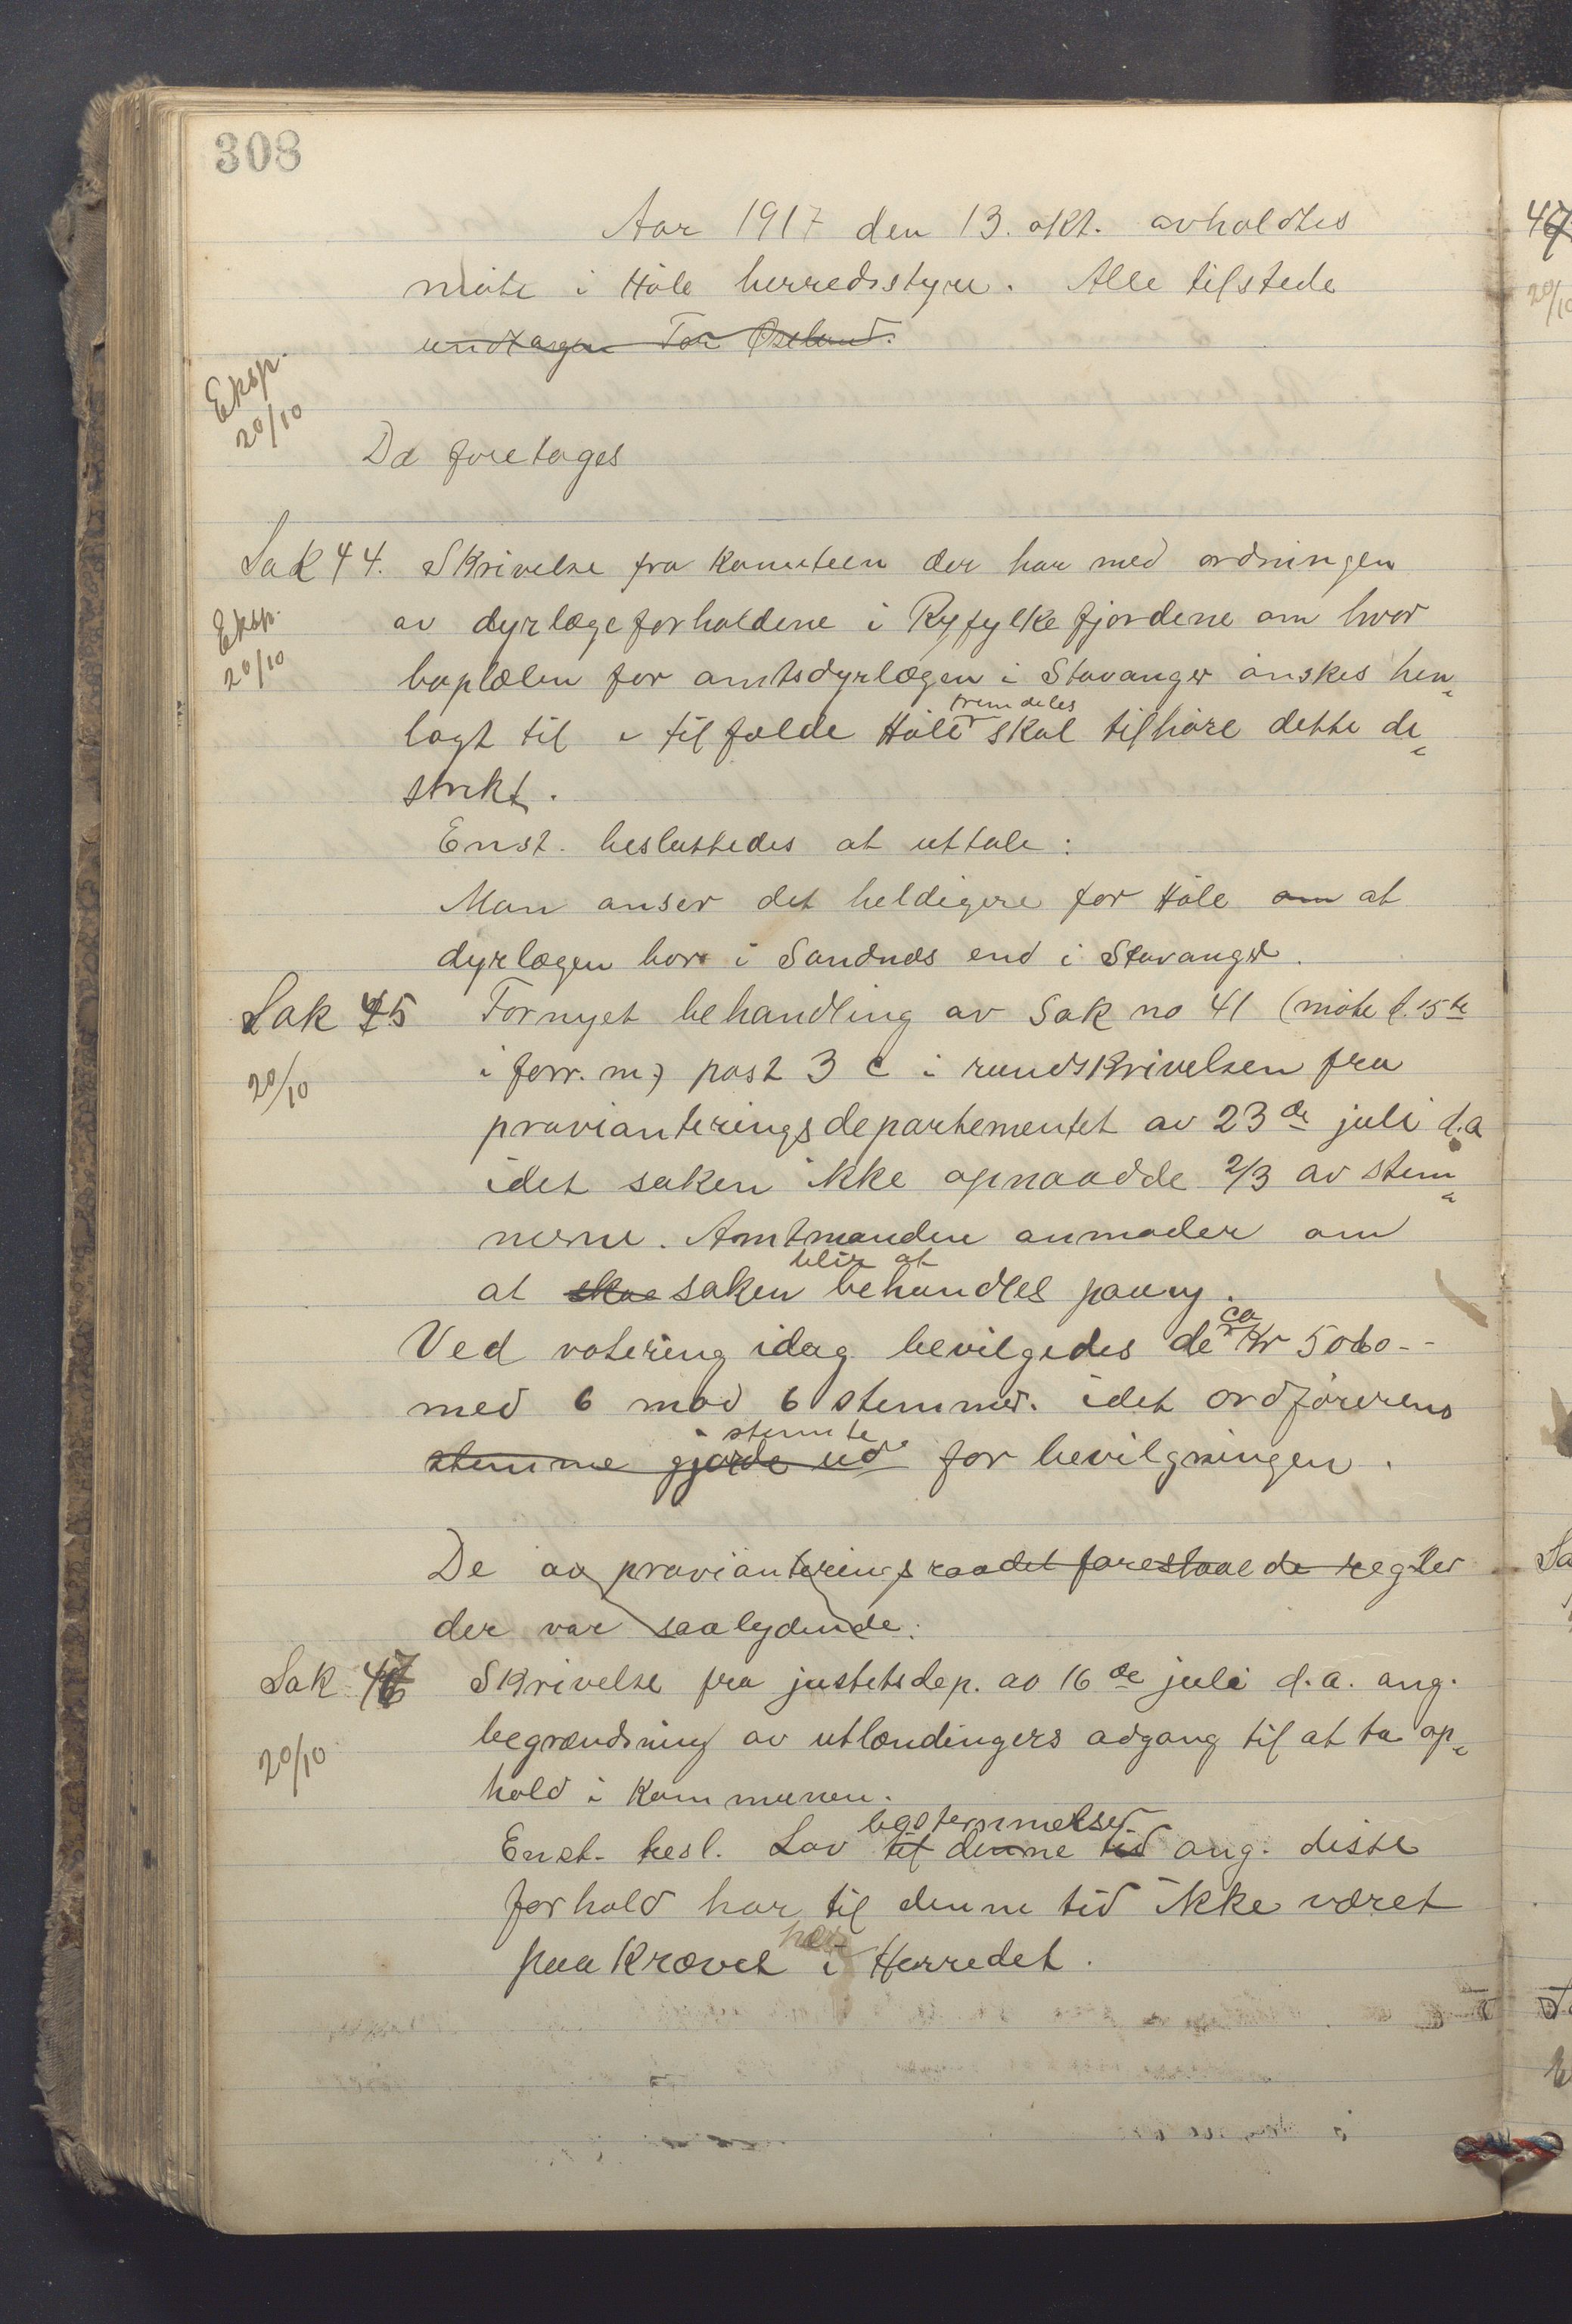 308
Aar 1917 den 13. okt. avholdtes
møte i Høle herredsstyre. Alle tilstede
undtagen Tor Øseland.
Eksp.
20/10
Da foretages
Sak 44. Skrivelse fra komiteen der har med ordningen
Eksp.
20/10
av dyrlægeforholdene i Ryfylkefjordene om hvor
boplælen for amtsdyrlægen i Stavanger ønskes hen-
fremdeles
lagt til i tilfælde Høle skal tilhøre dette de-
strikt.
Enst. besluttedes at uttale:
Man anser det heldigere for Høle om at
dyrlægen bor i Sandnes end i Stavanger.
Sak 45 Fornyet behandling av Sak no 41 (møte d. 15de
20/10
i forr. m.) post 3 c i rundskrivelsen fra
provianteringsdepartementet av 23de juli d.a
idet saken ikke opnaadde 2/3 av stem-
merne. Amtmanden anmoder om
blir at
at skae saken behandles paany.
ca
Ved votering idag bevilgedes de Kr 5000--
med 6 mod 6 stemmer. idet ordførerens
stemte
stemme gjorde ud for bevilgningen.
De av provianteringsraadet forestaaede regler
der var saalydende:
Sak 47 Skrivelse fra justitsdep. av 16de juli d.a. ang.
20/10
begrændsning av utlændingers adgang til at ta op-
hold i kommunen.
bestemmelser
Enst. besl. Lov til denne tid ang. disse
forhold har til denne tid ikke været
her
paakrævet i Herredet.
47
20/10
Sa